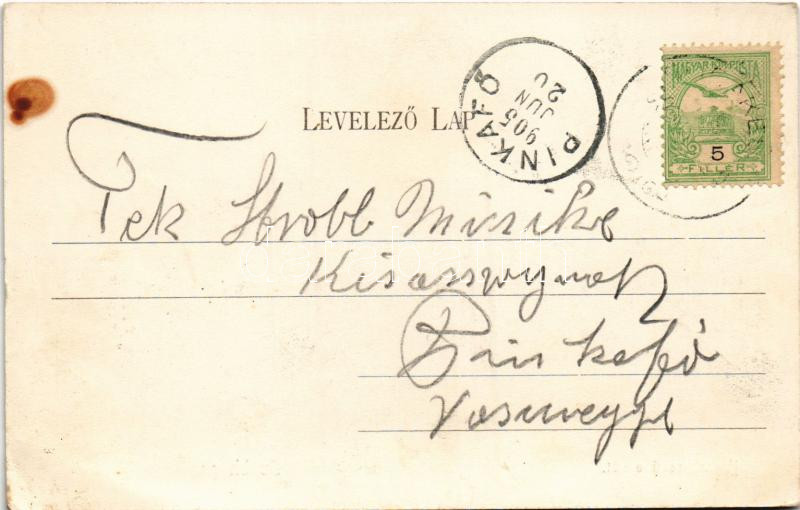 MAGYAR KIR. POSTA
5
FILLÉR
PINKAFŐ
905
JUN
20
LEVELEZŐ LAP
Tek Strobl Miczike
Kisasszonynak
Pinkafő
Vasmegye